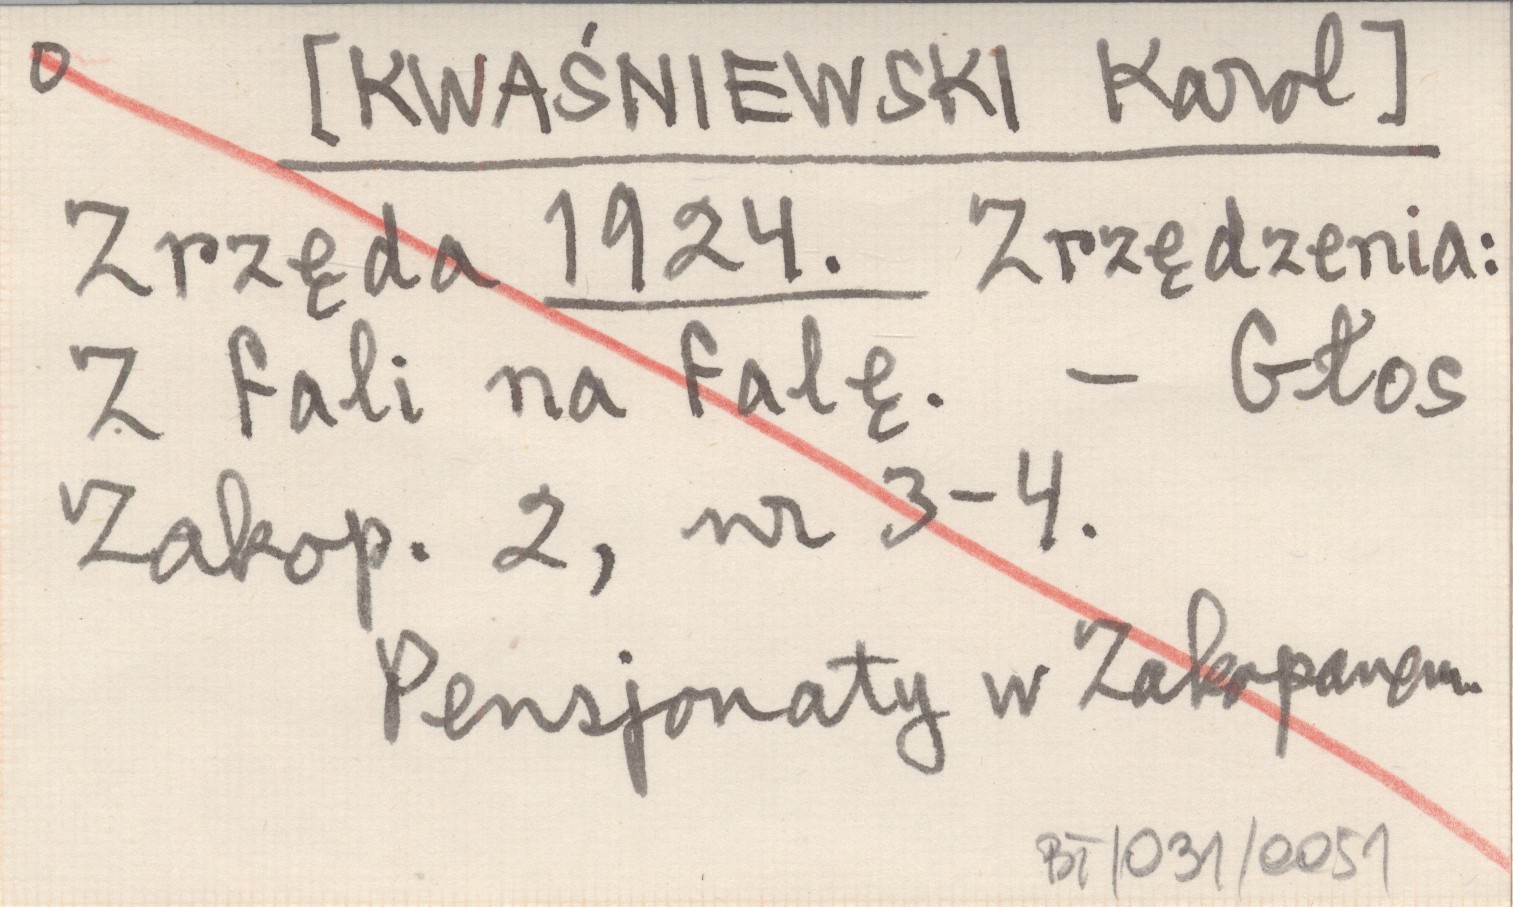 o [KWAŚNIEWSKI Karol]
Zrzęda 1924. Zrzędzenia:
Z fali na falę. - Głos
Zakop. 2, nr 3-4.
Pensjonaty w Zakopanem.
BT/031/0051